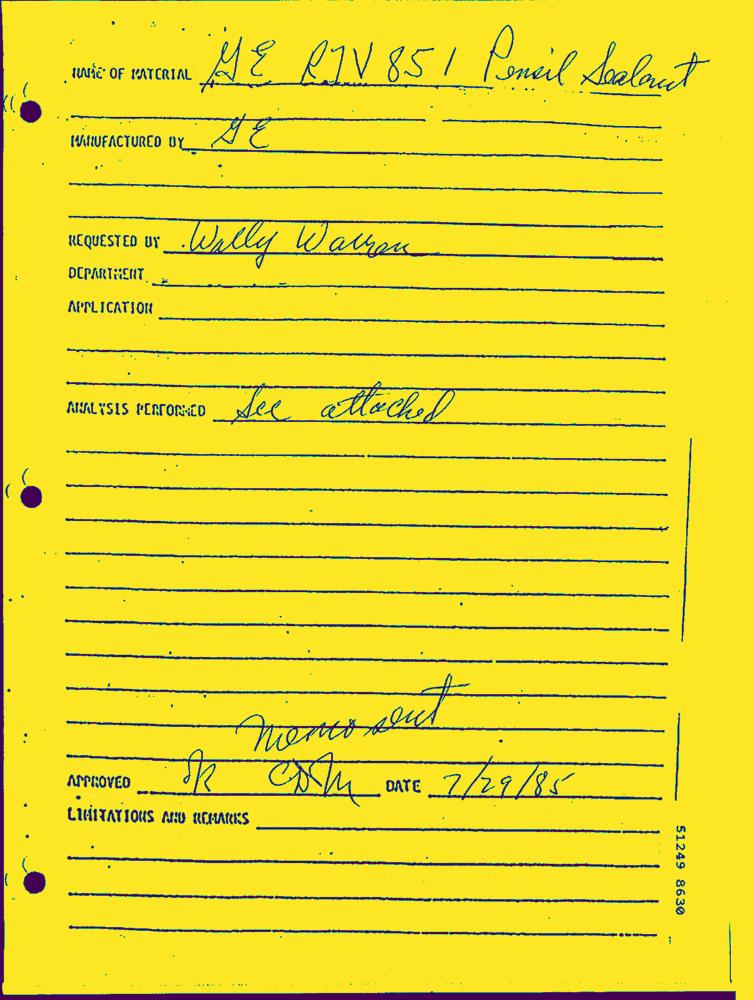 NAME OF MATERIAL GE RTV 851 Pensil Sealant
MANUFACTURED BY GE
REQUESTED BY Wally
DEPARTMENT
APPLICATION
ANALYSIS PERFORMED See attached
memo sent
APPROVED OK CDM DATE 7/29/85
LIMITATIONS AND REMARKS
51249 8630